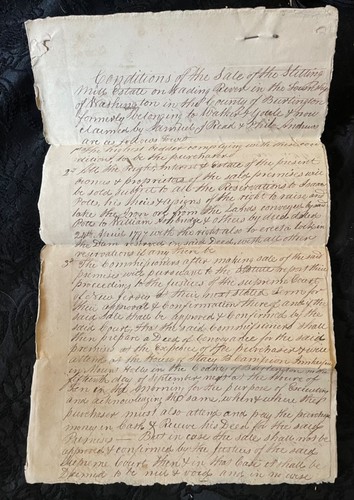 Conditions of the Sale of the Slitting
Mill Estate on Wading River in the Township
of Washington in the County of Burlington
formerly belonging to & now
claimed by Samuel G Read &
are as follows
the highest bidder complying with these con
ditions to be the purchaser
2d All the Right Interest & Estate of the present
owners & proprietors of the said premises will
be sold subject to all the Reservations to Isaac
Potts his heirs & assigns of the right to raise and
take the Iron ore from the lands conveyed by said
Potts to William & others by deed dated
24th April 1797 with the right also to erect a lock in
the Dam in said Deed with all other
reservations if any there be
3d The Commissioners after making sale of the said
premises will pursuant to the Statute report their
proceeding to the Justices of the supreme Court
of New Jersey at their next term for
their approval & confirmation thereof and if the
said Sale shall be approved & Confirmed by the
said Court, the said Commissioners shall
then prepare a Deed of Conveyance for the said
premises at the expense of the Purchaser & will
attend at the House of
in Mount Holly in the County of Burlington on the
fifteenth day of September next at the hour of
Ten in the Morning for the purpose of Executing
and acknowledging the same, when & where the
purchaser must also attend and pay the purchase
money in Cash & Receive his Deed for the said
Premises — But in case the sale shall not be
approved & confirmed by the Justices of the said
Supreme Court, then & in that Case it shall be
Deemed to be null & void and in no wise